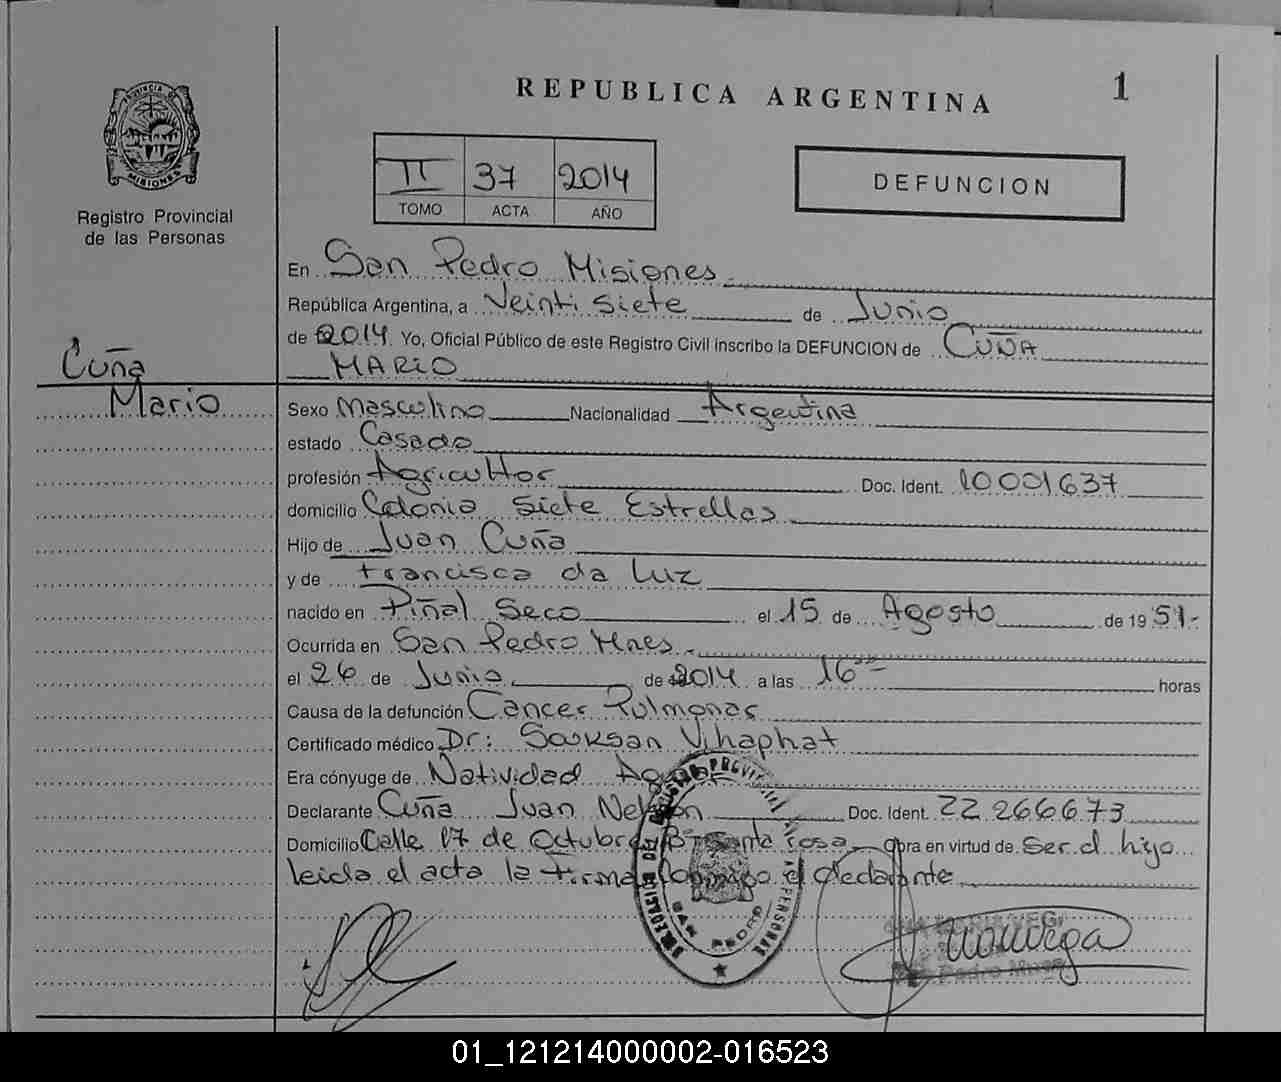 REPUBLICA ARGENTINA
1
PROVINCIA DE
MISIONES
Registro Provincial
de las Personas
II 37 2014
TOMO ACTA AÑO
DEFUNCION
En San Pedro Misiones
República Argentina, a Veinti siete de Junio
de 2014 Yo, Oficial Público de este Registro Civil inscribo la DEFUNCION de CUÑA
MARIO
Cuña
Mario
Sexo Masculino Nacionalidad Argentina
estado Casado
profesión Agricultor Doc. Ident. 10001637
domicilio Colonia Siete Estrellas
Hijo de Juan Cuña
y de Francisca da Luz
nacido en Piñal Seco el 15 de Agosto de 1951.-
Ocurrida en San Pedro Mnes.
el 26 de Junio de 2014 a las 16 horas
Causa de la defunción Cancer Pulmonar
Certificado médico Dr: Souksan Vihaphat
Era cónyuge de Natividad
Declarante Cuña Juan Nelson Doc. Ident. 22 266673
Domicilio Calle 17 de Octubre Bº Santa rosa obra en virtud de Ser el hijo
leida el acta la firma conmigo el declarante
REGISTRO PROVINCIAL
DE LAS PERSONAS
SAN PEDRO
ANA MARIA VEGA
San Pedro Mnes
01_121214000002-016523